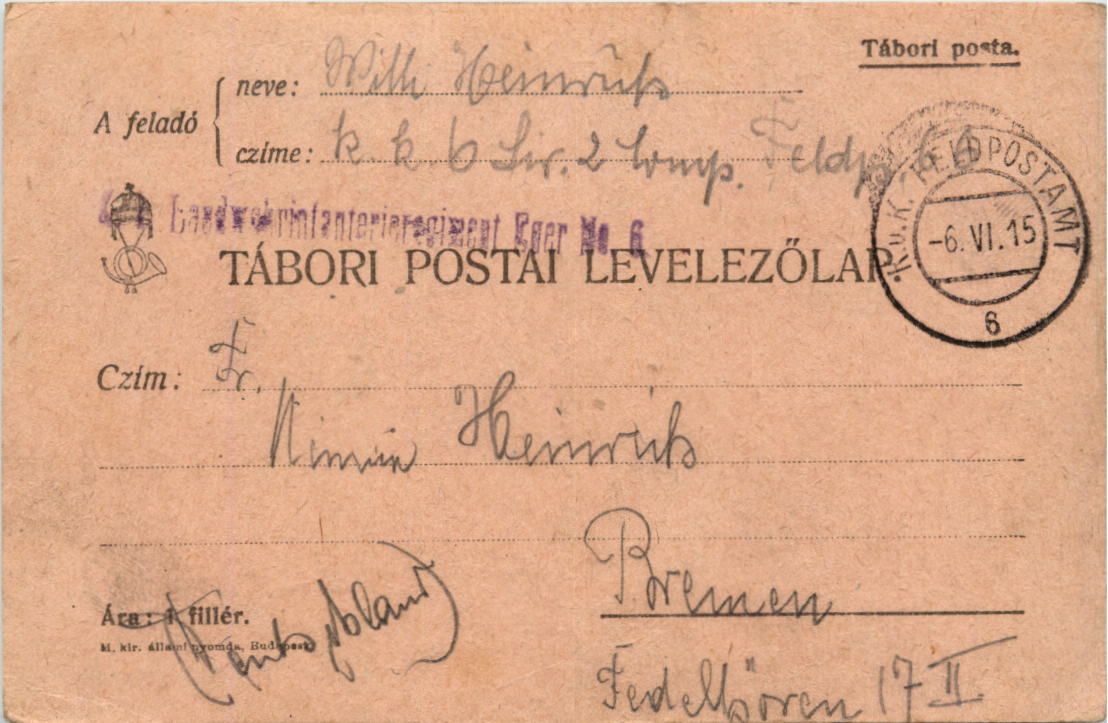 Tábori posta.
A feladó
neve: Willi Heinrich
czíme: k. k. 6 2 Comp. Feldp. 
Landwehrinfanterieregiment Eger No. 6
K.u.K. FELDPOSTAMT
-6. VI. 15
6
TÁBORI POSTAI LEVELEZŐLAP
Czím: Fr.
Heinrich
Bremen
Ára: 1 fillér.
(Deutschland)
M. kir. állami nyomda, Budapest
Fedelhören 17 II